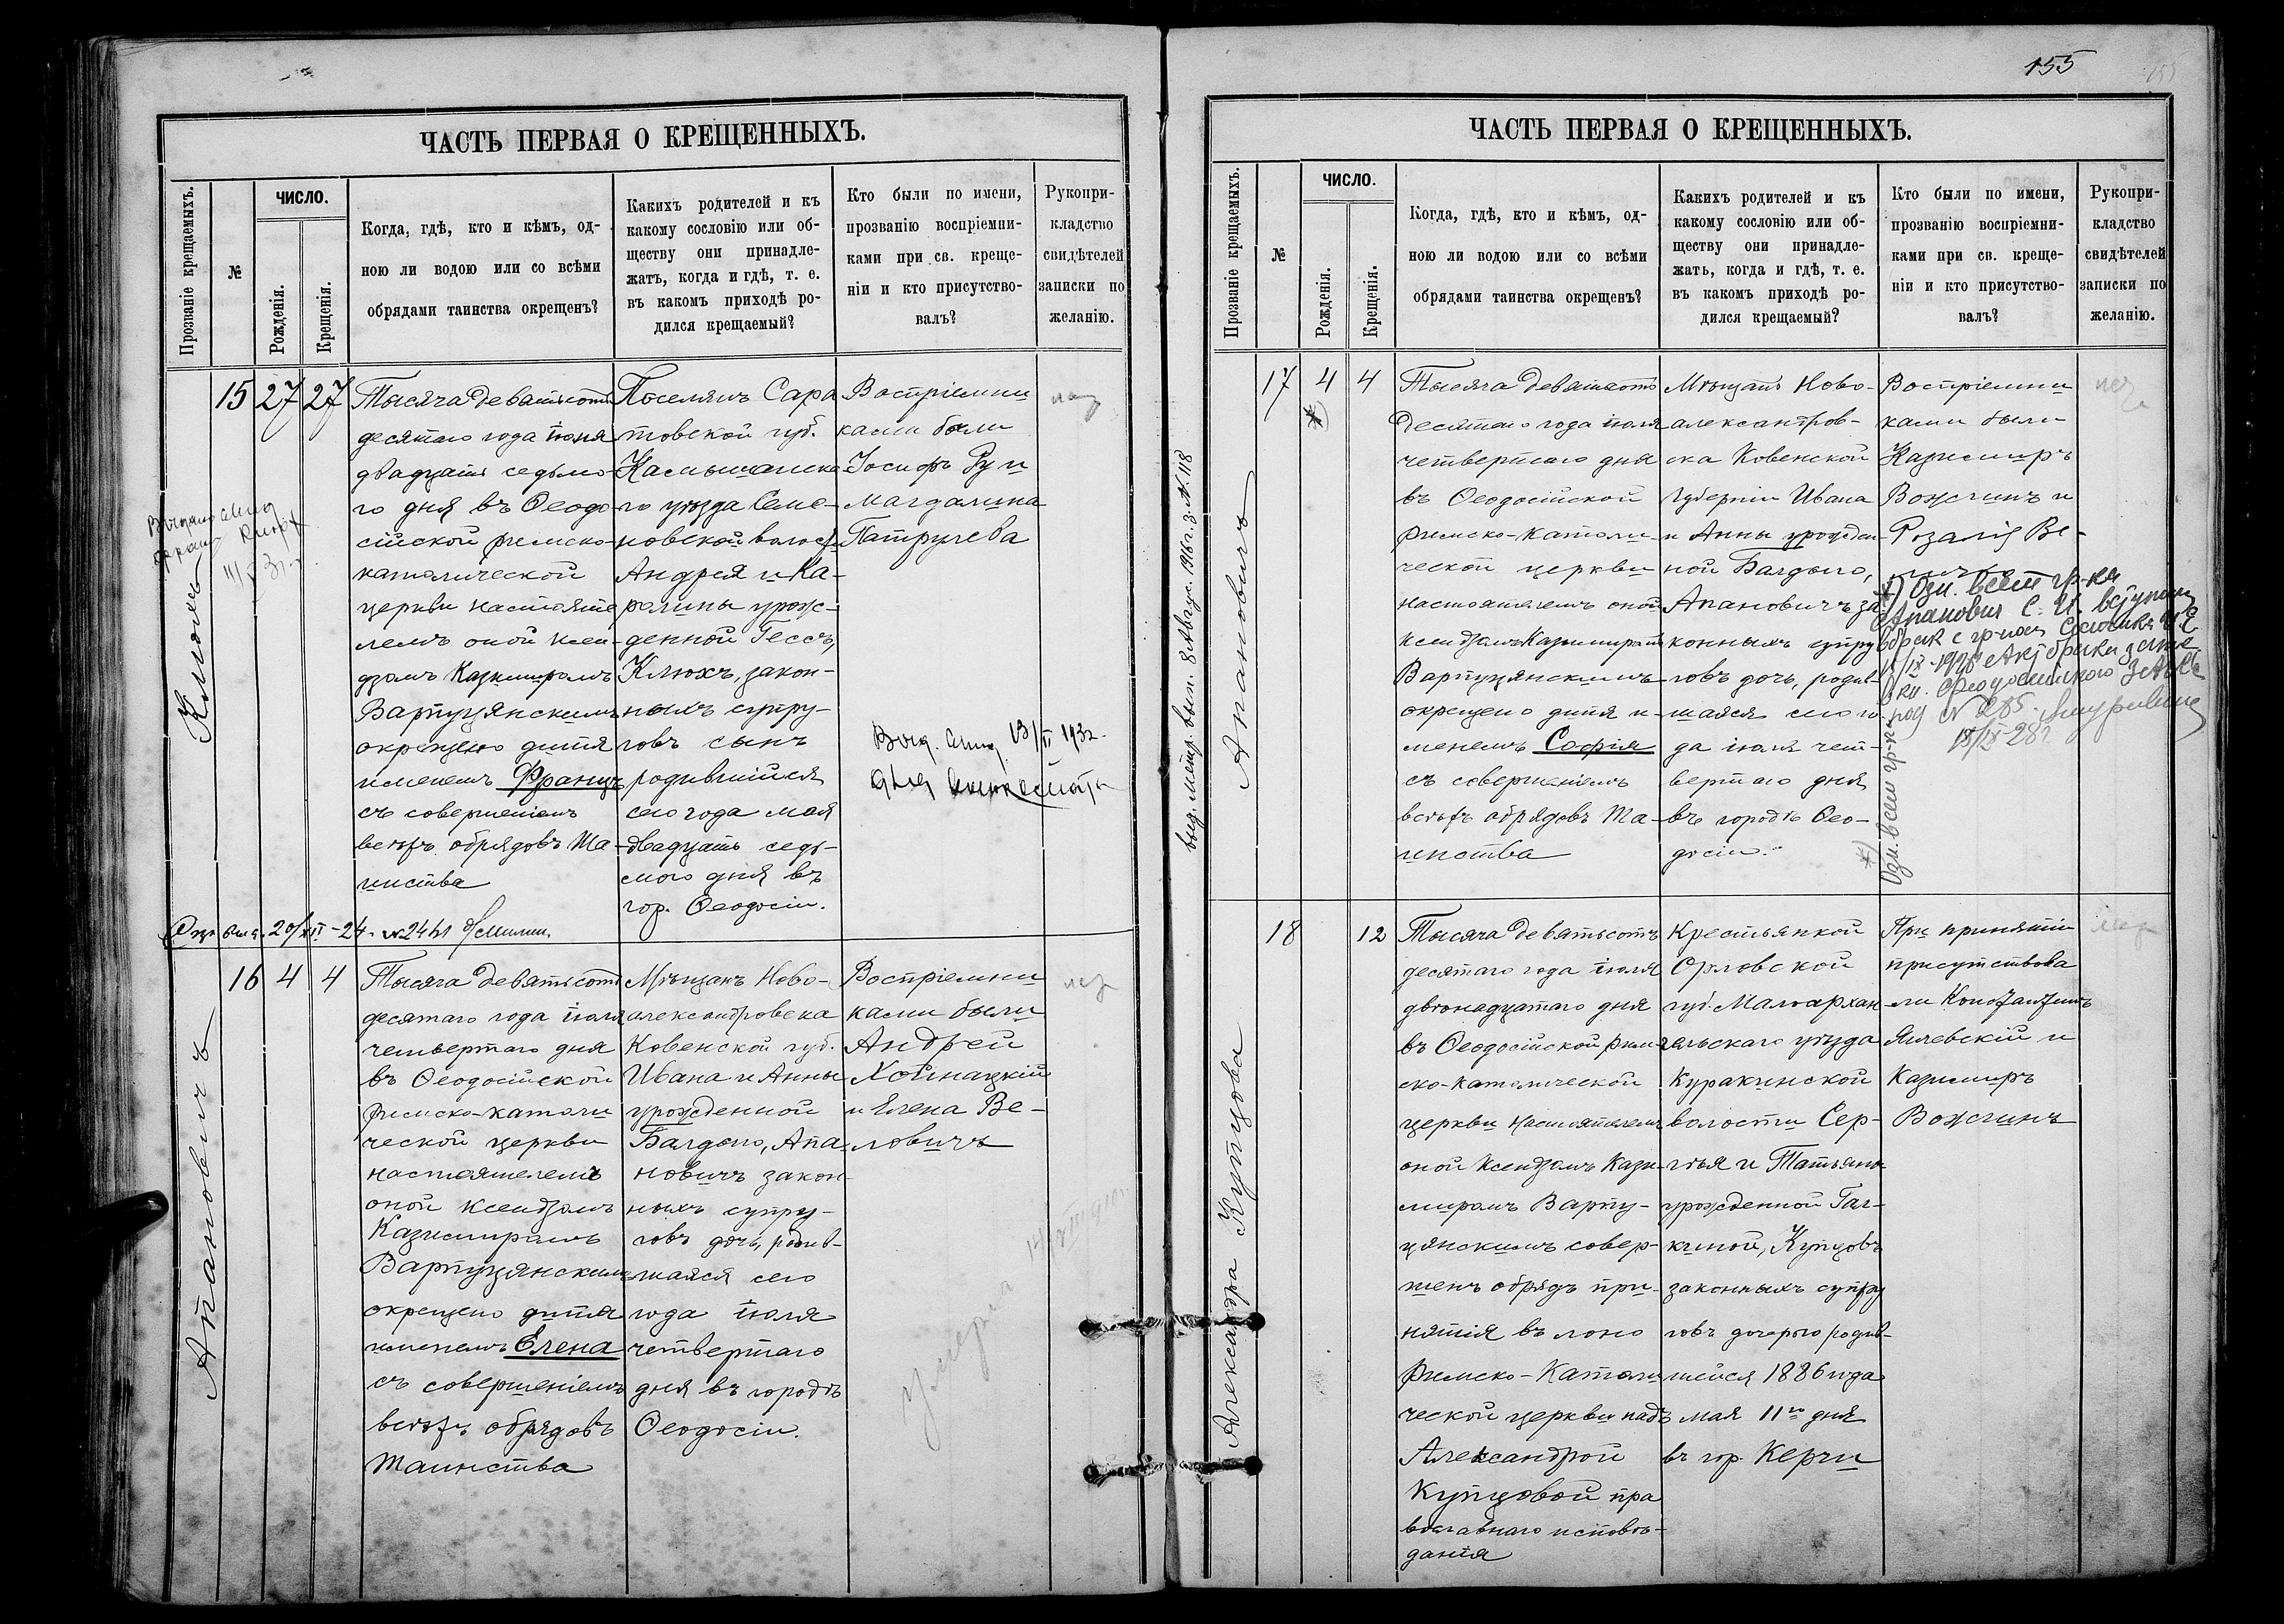 ЧАСТЬ ПЕРВАЯ О КРЕЩЕННЫХЪ.
Прозваніе крещаемыхъ.
№
ЧИСЛО.
Рожденія.
Крещенія.
Когда, гдѣ, кто и кѣмъ, од-
ною ли водою или со всѣми
обрядами таинства окрещенъ?
Какихъ родителей и къ
какому сословію или об-
ществу они принадле-
жатъ, когда и гдѣ, т. е.
въ какомъ приходѣ ро-
дился крещаемый?
Кто были по имени,
прозванію воспріемни-
ками при св. креще-
ніи и кто присутство-
валъ?
Рукопри-
кладство
свидѣтелей
записки по
желанію.
Клюхъ
15
27
27
Тысяча девятьсотъ
десятаго года іюня
двадцать седьмо-
го дня въ Ѳеодо-
сійской римско-
католической
церкви настояте
лемъ оной ксен-
дзомъ Казимиромъ
Варпуцянскимъ
окрещено дитя
именемъ Францъ
съ совершеніемъ
всѣхъ обрядовъ Та-
инства
Поселянъ Сара
товской губ.
Камышинска-
го уѣзда Семе-
новской волости
Андрея и Ка-
ролины урож-
денной Гессъ,
Клюхъ, закон-
ныхъ супру-
говъ сынъ
родившійся
сего года мая
двадцать седь-
мого дня въ
гор. Ѳеодосіи.
Воспріемни
ками были
Іосифъ Рун
Магдалина
Патручева
13/II 1932
20/XII-24. № 2461
Апановичъ
16
4
4
Тысяча девятьсотъ
десятаго года іюля
четвертаго дня
въ Ѳеодосійской
римско-католи
ческой церкви
настоятелемъ
оной ксендзомъ
Казимиромъ
Варпуцянскимъ
окрещено дитя
именемъ Елена
съ совершеніемъ
всѣхъ обрядовъ
Таинства
Мѣщанъ Ново-
александровска
Ковенской губ.
Ивана и Анны
урожденной
Балдыго, Апа
новичъ закон
ныхъ супру-
говъ дочь, родив-
шаяся сего
года іюля
четвертаго
дня въ городѣ
Ѳеодосіи.
Воспріемни
ками были
Андрей
Хойнацкій
и Елена Ве-
ловичъ
умерла
155
ЧАСТЬ ПЕРВАЯ О КРЕЩЕННЫХЪ.
Прозваніе крещаемыхъ.
№
ЧИСЛО.
Рожденія.
Крещенія.
Когда, гдѣ, кто и кѣмъ, од-
ною ли водою или со всѣми
обрядами таинства окрещенъ?
Какихъ родителей и къ
какому сословію или об-
ществу они принадле-
жатъ, когда и гдѣ, т. е.
въ какомъ приходѣ ро-
дился крещаемый?
Кто были по имени,
прозванію воспріемни-
ками при св. креще-
ніи и кто присутство-
валъ?
Рукопри-
кладство
свидѣтелей
записки по
желанію.
выд. метр. вып. 8 Января 1916 г. з. № 118
Апановичъ
17
4
4
Тысяча девятьсотъ
десятаго года іюля
четвертаго дня
въ Ѳеодосійской
римско-католи-
ческой церкви
настоятелемъ оной
ксендзомъ Казимиромъ
Варпуцянскимъ
окрещено дитя и-
менемъ Софія
съ совершеніемъ
всѣхъ обрядовъ Та-
инства
Мѣщанъ Ново-
александров-
ска Ковенской
Губерніи Ивана
и Анны урожден-
ной Балдыго,
Апановичъ за-
конныхъ супру
говъ дочь, родив-
шаяся сего го-
да іюля чет-
вертаго дня
въ городѣ Ѳео-
досіи.
Воспріемни
ками были
Казимиръ
Вожгинъ и
Розалія Ве-
под № 285.
Александра Купцова
18
12
Тысяча девятьсотъ
десятаго года іюля
двѣнадцатаго дня
въ Ѳеодосійской рим-
ско-католической
церкви настоятелемъ
оной ксендзомъ Кази-
миромъ Варпу-
цянскимъ совер-
шенъ обрядъ при-
нятія въ лоно
Римско-Католи
ческой церкви надъ
Александрой
Купцовой пра
вославнаго исповѣ-
данія
Крестьянкой
Орловской
губ. Малоархан
гельскаго уѣзда
Куракинской
волости Сер-
гѣя и Татьяны
урожденной Гал-
киной, Купцовъ
законныхъ супру
говъ дочерью родив-
шейся 1886 года
мая 11го дня
въ гор. Керчи
При принятіи
присутствова
ли Константинъ
Ячевскій и
Казимиръ
Вожгинъ